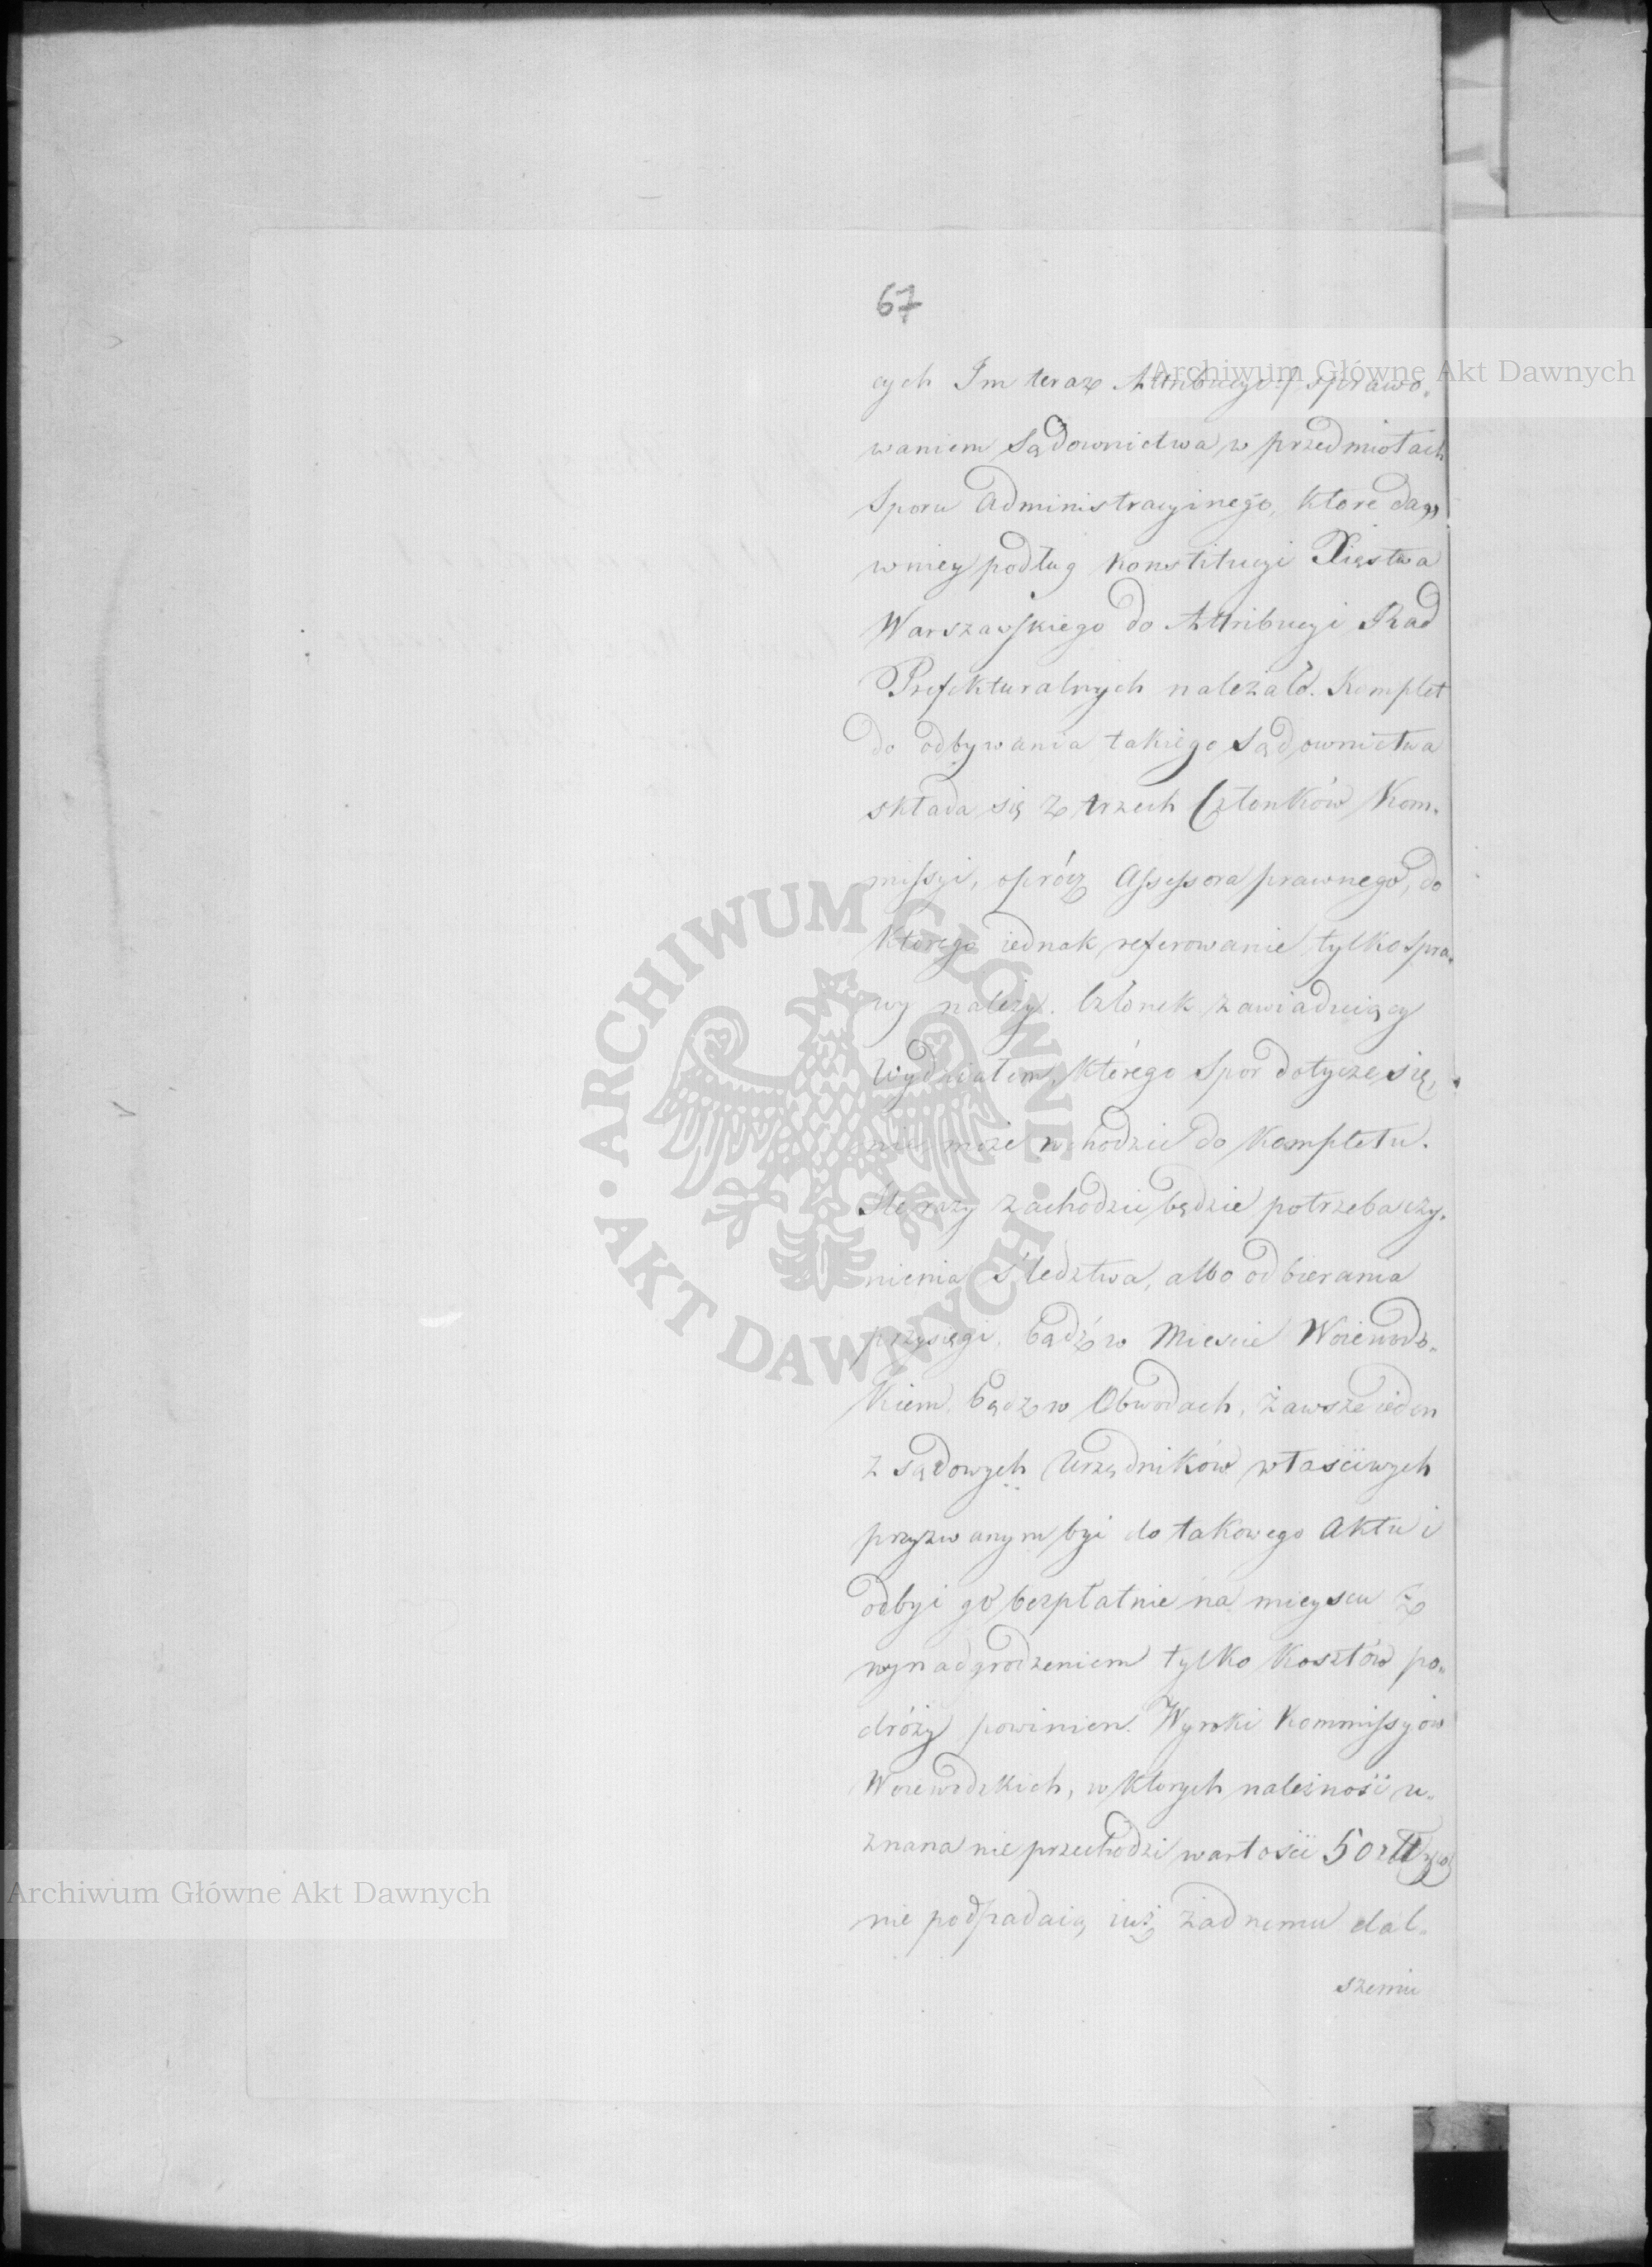 67
cych Im teraz Attribucyi / sprawo„
waniem Sądownictwa w przedmiotach
Sporu Administracyinego, które da„
wniey podług Konstitucyi Xięstwa
Warszawskiego do Attribucyi Rad
Prefekturalnych należało. Komplet
do odbywania takiego Sądownictwa
składa się z trzech Członków Kom„
missyi, oprócz Assessora prawnego, do
którego iednak referowanie tylko spra„
wy należy. Członek zawiaduiący
Wydziałem, którego Spor dotycze się,
nie może wchodzić do Kompletu.
Ile razy zachodzić będzie potrzeba czy„
nienia Sledztwa, albo odbierania
przysięgi, bądź w Mieście Woiewodz„
kiem, bądz w Obwodach, zawsze ieden
z sądowych Urzędników właściwych
przyzwanym być do takowego Aktu i
odbyć go bezpłatnie na mieyscu z
wynadgrodzeniem tylko kosztów po„
dróży powinien. Wyroki Kommissyow
Woiewodzkich, w ktorych należność u„
znana nie przechodzi wartości 50 zł
nie podpadaią iuż żadnemu dal„
szemu
Archiwum Główne Akt Dawnych
Archiwum Główne Akt Dawnych
ARCHIWUM GŁÓWNE AKT DAWNYCH